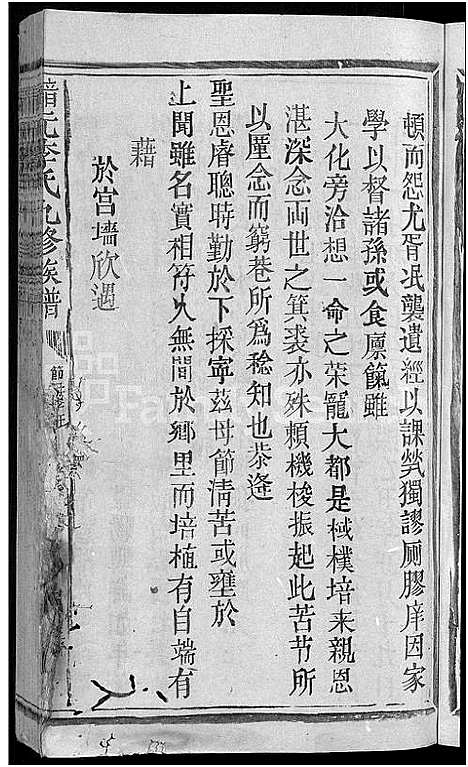 頓而怨尤胥泯襲遺經以課煢獨謬厠膠庠因家
學以督諸孫或食廪餼雖
大化旁洽想一命之荣寵大都是棫樸培来親恩
湛深念両世之箕裘亦殊頼機梭振起此苦节所
以厪念而窮巷所爲稔知也恭逢
聖恩睿聰時勤於下採寧茲母節清苦或壅於
上聞雖名實相符久無間於郷里而培植有自端有
藉
於宫墻欣遇
李氏九修族譜
節